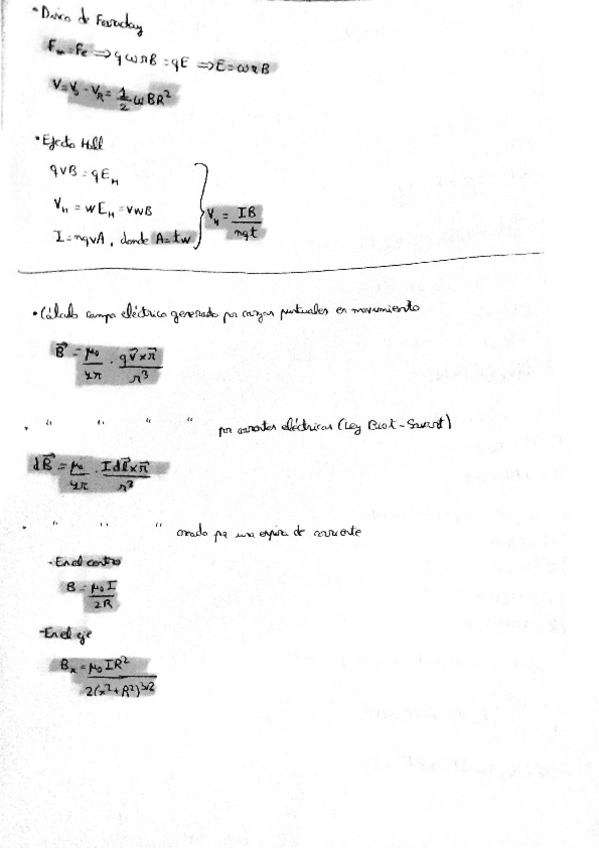 • Disco de Faraday
Fm = Fe ⇒ qωrB = qE ⇒ E = ωrB
V = V₀ - V_R = 1/2 ωBR²
• Efecto Hall
qvB = qE_H
V_H = wE_H = vwB
I = nqvA, donde A = tw
V_H = IB/nqt
• Cálculo campo eléctrico generado por cargas puntuales en movimiento
B⃗ = μ₀/4π · qv⃗×r⃗/r³
• " " " " por corrientes eléctricas (Ley Biot-Savart)
dB⃗ = μ₀/4π · Idl⃗×r⃗/r³
• " " " creado por una espira de corriente
- En el centro
B = μ₀I/2R
- En el eje
Bₓ = μ₀IR²/2(x²+R²)^3/2